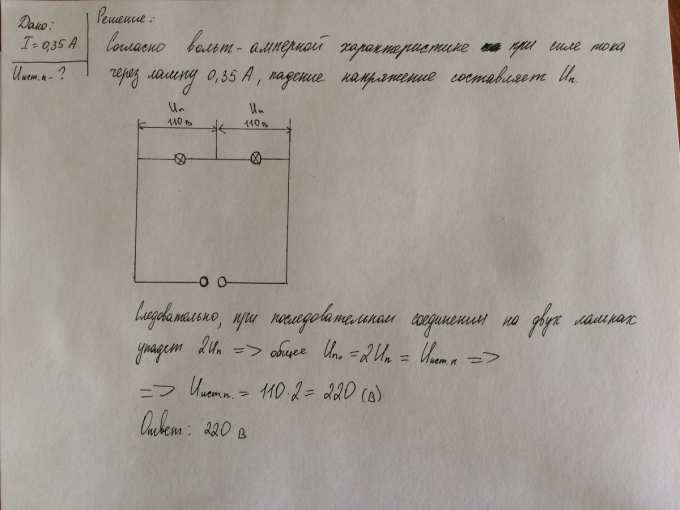 Дано:
I = 0,35 А
Uист.п. - ?
Решение:
Согласно вольт-амперной характеристике при силе тока
через лампу 0,35 А, падение напряжение составляет Uп.
Uп Uп
110 В 110 В
Следовательно, при последовательном соединении на двух лампах
упадет 2Uп => общее Uпо = 2Uп = Uист.п =>
=> Uист.п. = 110·2 = 220 (В)
Ответ: 220 В